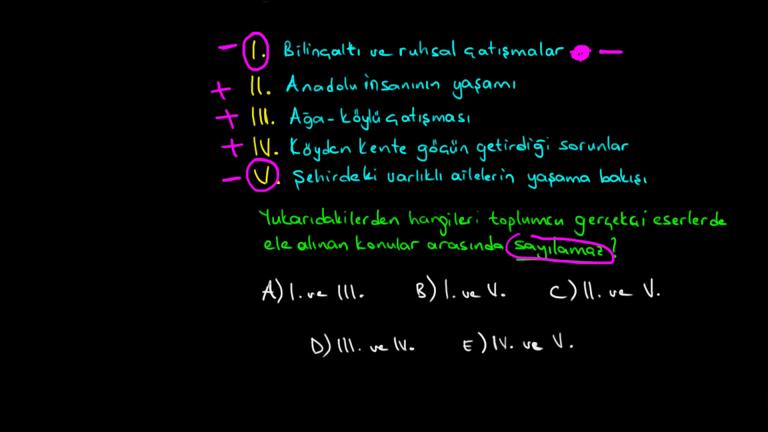 – I. Bilinçaltı ve ruhsal çatışmalar –
+ II. Anadolu insanının yaşamı
+ III. Ağa-köylü çatışması
+ IV. Köyden kente göçün getirdiği sorunlar
– V. Şehirdeki varlıklı ailelerin yaşama bakışı
Yukarıdakilerden hangileri toplumcu gerçekçi eserlerde
ele alınan konular arasında sayılamaz?
A) I. ve III. B) I. ve V. C) II. ve V.
D) III. ve IV. E) IV. ve V.